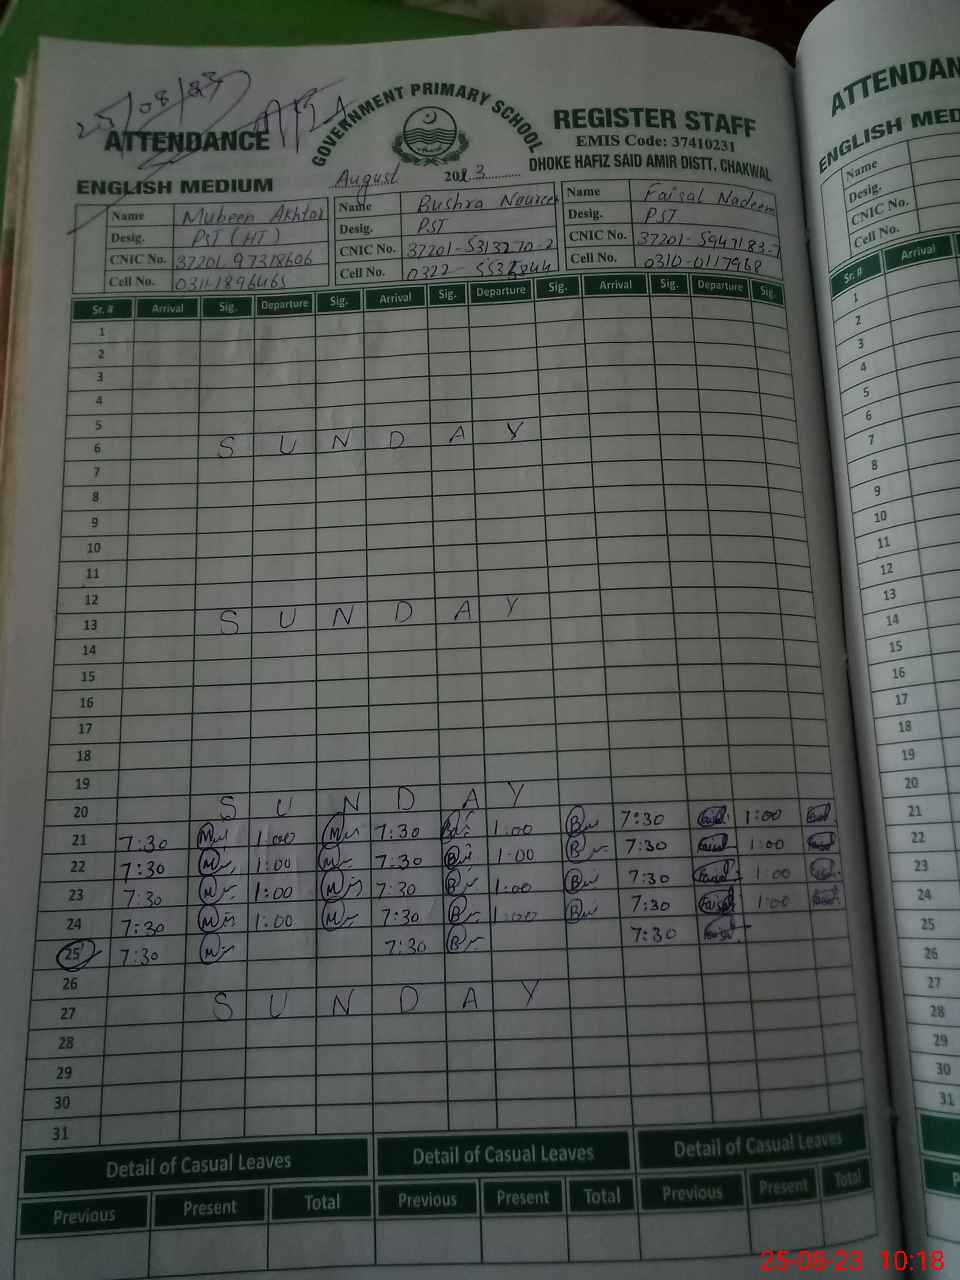 25/08/23
ATTENDANCE
GOVERNMENT PRIMARY SCHOOL
REGISTER STAFF
EMIS Code: 37410231
DHOKE HAFIZ SAID AMIR DISTT. CHAKWAL
ENGLISH MEDIUM
August 2023
Name Mubeen Akhtar Name Bushra Noureen Name Faisal Nadeem
Desig. PST (HT) Desig. PST Desig. PST
CNIC No. 37201-97318606 CNIC No. 37201-5313270-2 CNIC No. 37201-5947183-7
Cell No. 0311-1896465 Cell No. Cell No. 0310-0117968
Sr. # Arrival Sig. Departure Sig. Arrival Sig. Departure Sig. Arrival Sig. Departure Sig.
1
2
3
4
5
6 SUNDAY
7
8
9
10
11
12
13 SUNDAY
14
15
16
17
18
19
20 SUNDAY
21 7:30 1:00 7:30 1:00 7:30 1:00
22 7:30 1:00 7:30 1:00 7:30 1:00
23 7:30 1:00 7:30 1:00 7:30 1:00
24 7:30 1:00 7:30 1:00 7:30 Faisal 1:00
25 7:30 7:30 7:30
26
27 SUNDAY
28
29
30
31
Detail of Casual Leaves Detail of Casual Leaves Detail of Casual Leaves
Previous Present Total Previous Present Total Previous Present Total
ATTENDAN
ENGLISH MED
Name
Desig.
CNIC No.
Cell No.
Sr. # Arrival
1
2
3
4
5
6
7
8
9
10
11
12
13
14
15
16
17
18
19
20
21
22
23
24
25
26
27
28
29
30
31
P
25-08-23 10:18